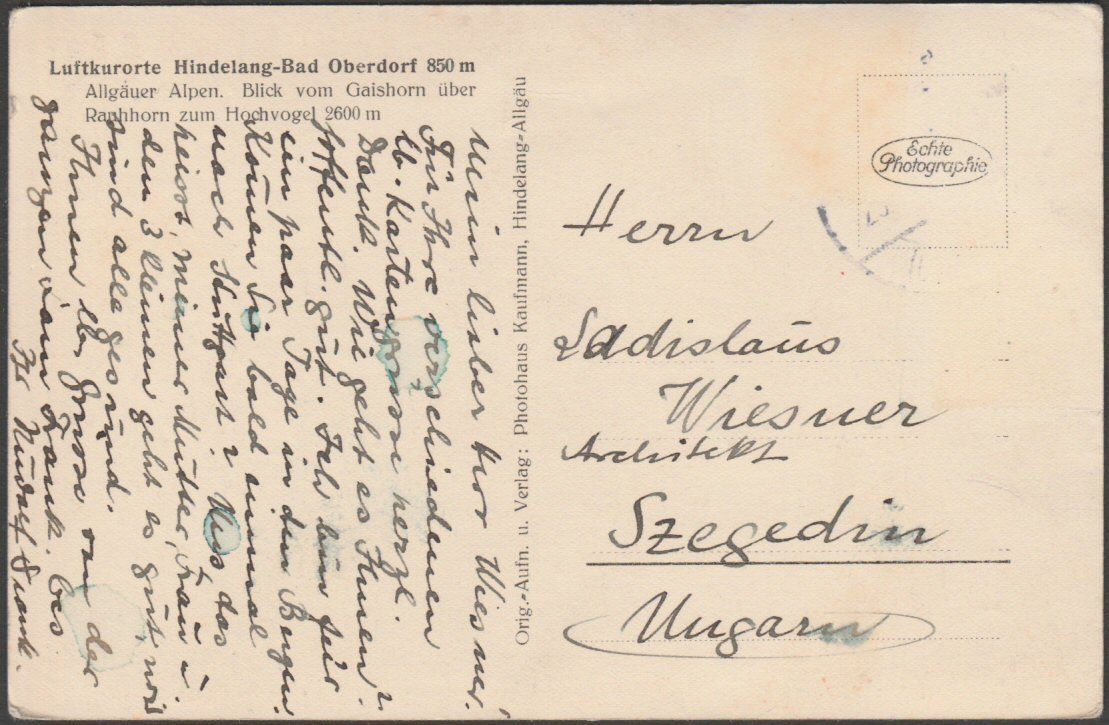 Luftkurorte Hindelang-Bad Oberdorf 850 m
Allgäuer Alpen. Blick vom Gaishorn über
Rauhhorn zum Hochvogel 2600 m
Mein lieber Herr Wiesner!
Für Ihre verschiedenen
lb. Kartengrüsse herzl.
Dank. Wie geht es Ihnen?
Hoffentl. gut. Ich bin für
ein paar Tage in den Bergen.
Können Sie bald einmal
nach Stuttgart? Uns, das
heisst, meiner Mutter, Frau u.
den 3 kleinen geht es gut, wir
sind alle gesund.
Ihnen lb. Grüsse von der
ganzen Fam. Frank.
Ihr Rudolf Frank.
Orig.-Aufn. u. Verlag: Photohaus Kaufmann, Hindelang-Allgäu
Echte
Photographie
Herrn
Ladislaus
Wiesner
Architekt
Szegedin
Ungarn